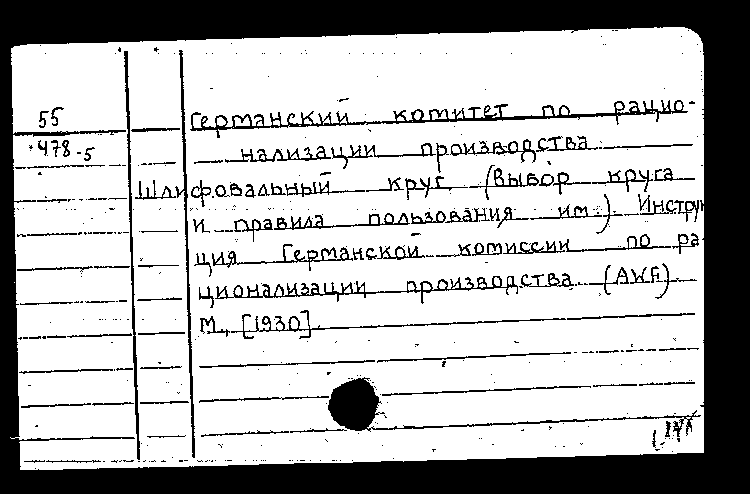 55
478-5
Германский комитет по рацио-
нализации производства
Шлифовальный круг (Выбор круга
и правила пользования им.). Инструк
ция Германской комиссии по ра
ционализации производства (AWF).
М., [1930].